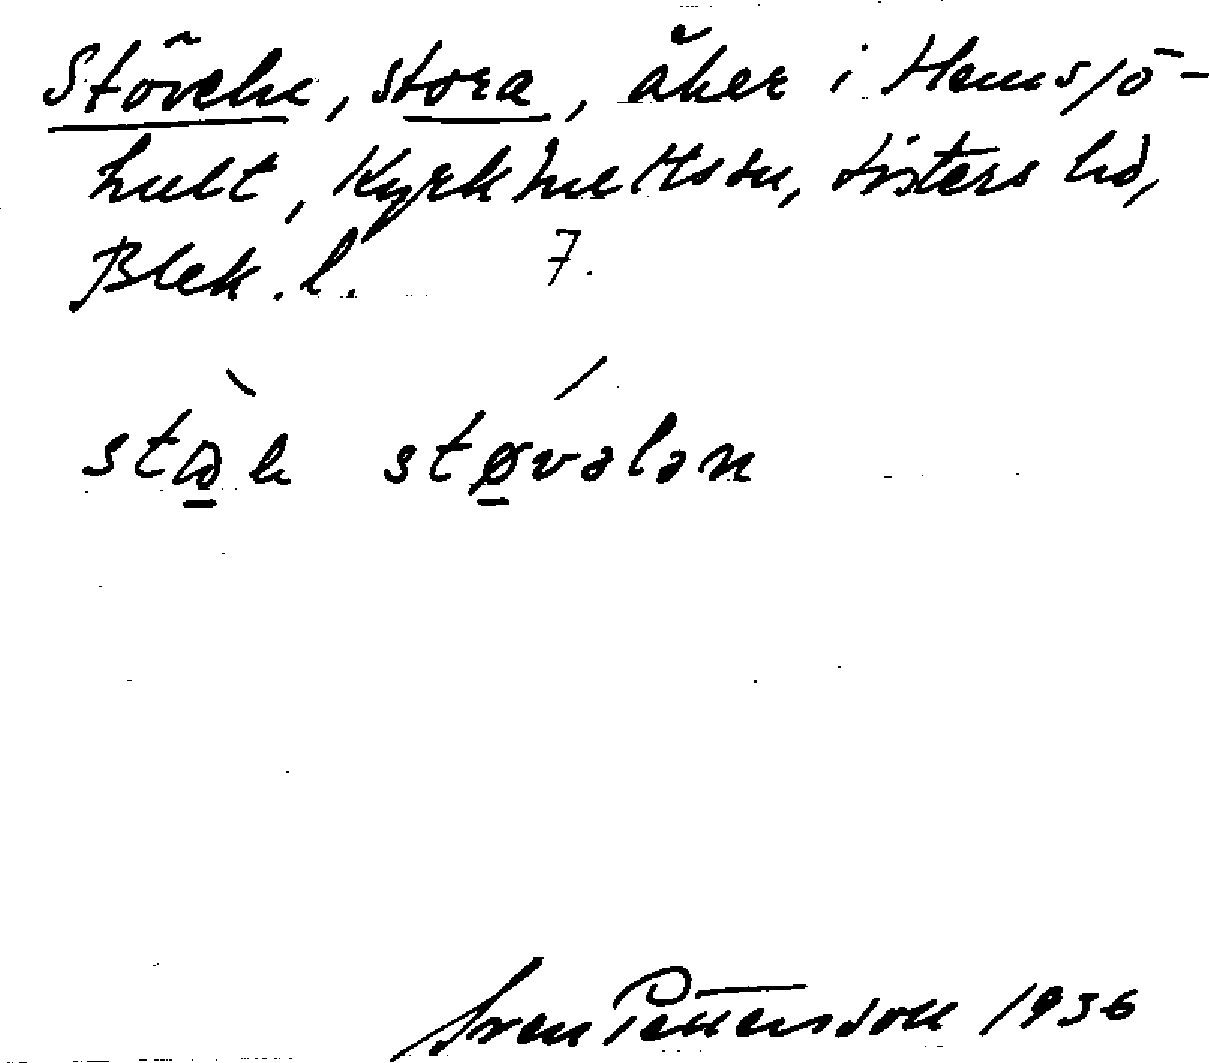 Stöveln, stora, åker i Hemsjö-
hult, Kyrkhults sn, Listers hd,
Blek. l. 7.
støvələn
Sven Pettersson 1936